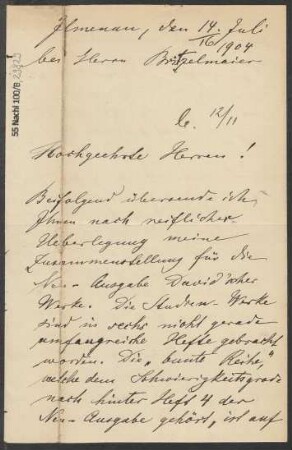 Ilmenau, den 14. Juli
16/ 1904
bei Herrn Britzelmaier
b. 12/11
55 Nachl 100/B
Hochgeehrte Herren!
Beifolgend übersende ich
Ihnen nach reiflicher
Ueberlegung meine
Zusammenstellung für die
Neu-Ausgabe David'scher
Werke. Die Studien-Werke
sind in sechs nicht gerade
umfangreiche Hefte gebracht
worden. Die „bunte Reihe",
welche dem Schwierigkeitsgrade
nach hinter Heft 4 der
Neu-Ausgabe gehört, ist auf